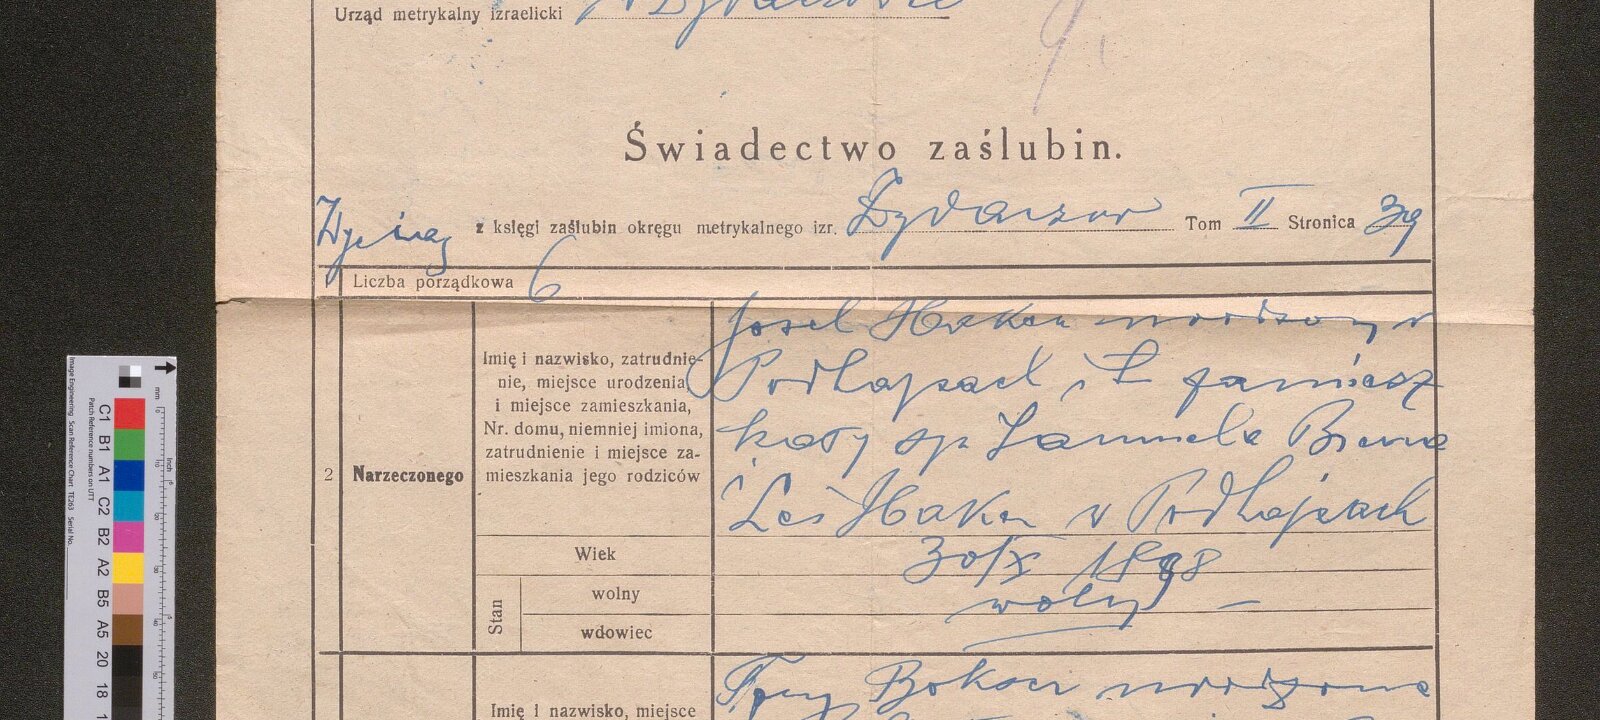 Urząd metrykalny izraelicki
Świadectwo zaślubin.
Wyciąg z księgi zaślubin okręgu metrykalnego izr. Żydaczow Tom II Stronica 39
1 Liczba porządkowa 6
2 Narzeczonego
Imię i nazwisko, zatrudnie-
nie, miejsce urodzenia
i miejsce zamieszkania,
Nr. domu, niemniej imiona,
zatrudnienie i miejsce za-
mieszkania jego rodziców
Josel Haken urodzony w
Podhajcach i zamiesz
kały sp Samuela
i Lei Haken w Podhajcach
Wiek 30/X 1898
Stan
wolny wolny –
wdowiec
Imię i nazwisko, miejsce
Boken urodzona
Image Engineering Scan Reference Chart TE263 Serial No.
Patch Reference numbers on UTT
C1 B1 A1 C2 B2 A2 B5 A5 20 18
mm
inch